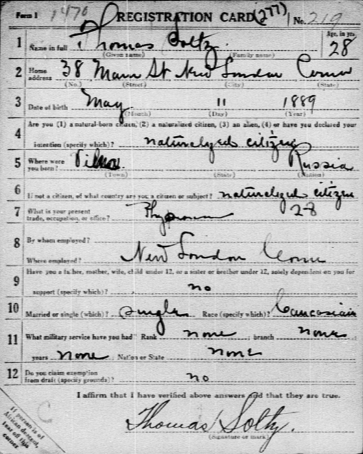 Form 1 1470 REGISTRATION CARD (277) No. 219
1 Name in full Thomas Soltz Age, in yrs. 28
(Given name) (Family name)
2 Home address 38 Main St New London Conn
(No.) (Street) (City) (State)
3 Date of birth May 11 1889
(Month) (Day) (Year)
4 Are you (1) a natural-born citizen, (2) a naturalized citizen, (3) an alien, (4) or have you declared your
intention (specify which)? naturalized citizen
5 Where were you born? Russia
(Town) (State) (Nation)
6 If not a citizen, of what country are you a citizen or subject? naturalized citizen
7 What is your present trade, occupation, or office? 28
8 By whom employed?
Where employed? New London Conn
9 Have you a father, mother, wife, child under 12, or a sister or brother under 12, solely dependent on you for
support (specify which)? no
10 Married or single (which)? single Race (specify which)? Caucasian
11 What military service have you had? Rank none branch none
years none Nation or State none
12 Do you claim exemption from draft (specify grounds)? no
I affirm that I have verified above answers and that they are true.
Thomas Soltz.
(Signature or mark)
If person is of African descent, tear off this corner